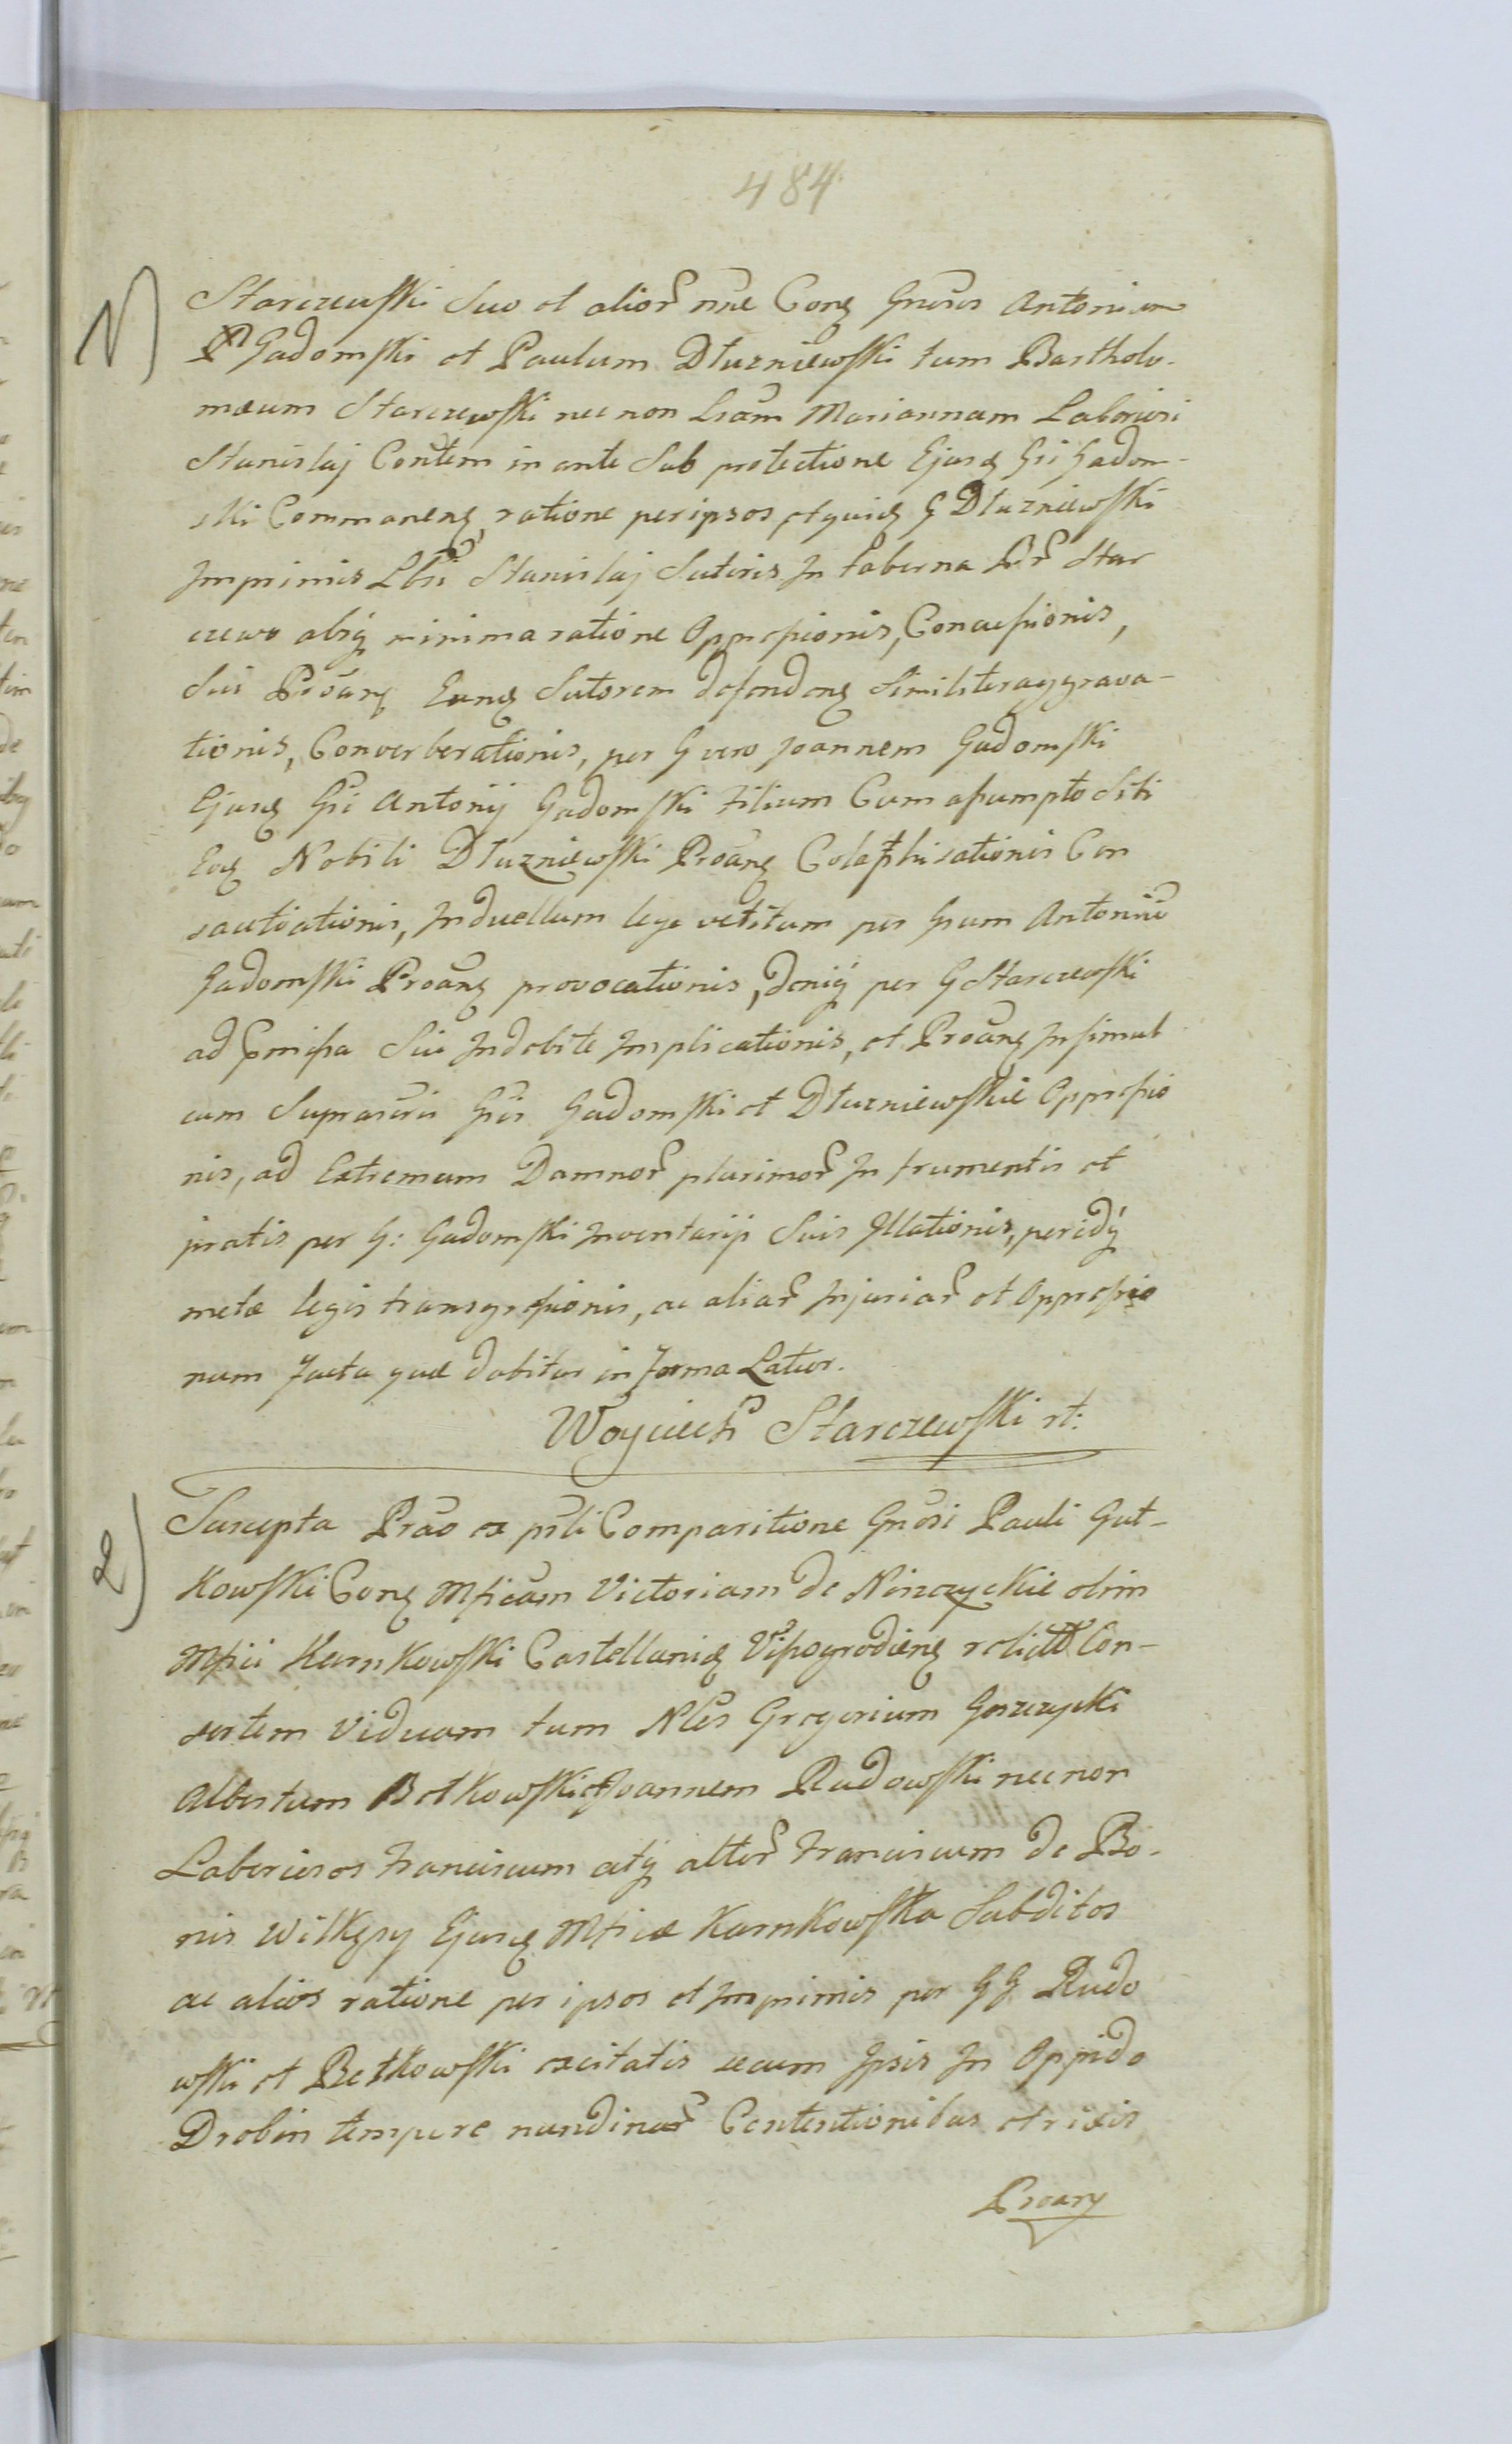 484
1)
Starczewski Suo et alior nne Conq Gnosos Antonium
Gadomski et Paulum Dłuzniewski tum Bartholo-
mæum Starczewski nec non Lram Mariannam Laboriosi
Stanislaj Contem in ante Sub protectione Ejusq Gsi Gadom-
ski Commanenq ratione per ipsos et quidq G Dłuzniewski
Imprimis Lbsi Stanislaj Sutoris In taberna Star
czewo absq minima ratione Oppressionis, Concussionis,
Sui Proanq Eunq Sutorem defendenq Similiter aggrava-
tionis, Converberationis, per G vero Joannem Gadomski
Ejusq Gsi Antonij Gadomski filium Cum assumpto Siti
Eoq Nobili Dłuzniewski Proanq Colaphisationis Con
sautiationis, In duellum lege vetitum per Gsum Antoniu
Gadomski Proanq provocationis, deniq per G Starczewski
ad Pmissa Sui Indebite Implicationis, et Proanq Insimul
cum Suprascris Gsis Gadomski et Dłuzniewskie Oppressio
nis, ad Extremum Damnor plurimor In frumentis et
pratis per G: Gadomski Inventarijs Suis Illationis, per idq
metæ legis transgressionis, ac aliar Injuriar et Oppressio
num facta quæ dabitur in forma Latior.
Woyciech Starczewski rt:
2)
Suscepta Prao ex psli Comparitione Gnosi Pauli Gut-
kowski Conq Mficam Victoriam de Niszczyckie olim
Mfici Karnkowski Castellaniq Vissogrodienq relictæ Con-
sortem Viduam tum Nles Gregorium Goszczycki
Albertum Betkowski et Joannem Rudowski nec non
Laboriosos Franciscum atq alter Franciscum de Bo-
nis Wilkęsy Ejusq Mficæ Karnkowska Subditos
ac alios ratione per ipsos et Imprimis per GG Rudo
wski et Betkowski excitatis secum Ipsis In Oppido
Drobin tempore nundinar Contentionibus et rixis
Proanq